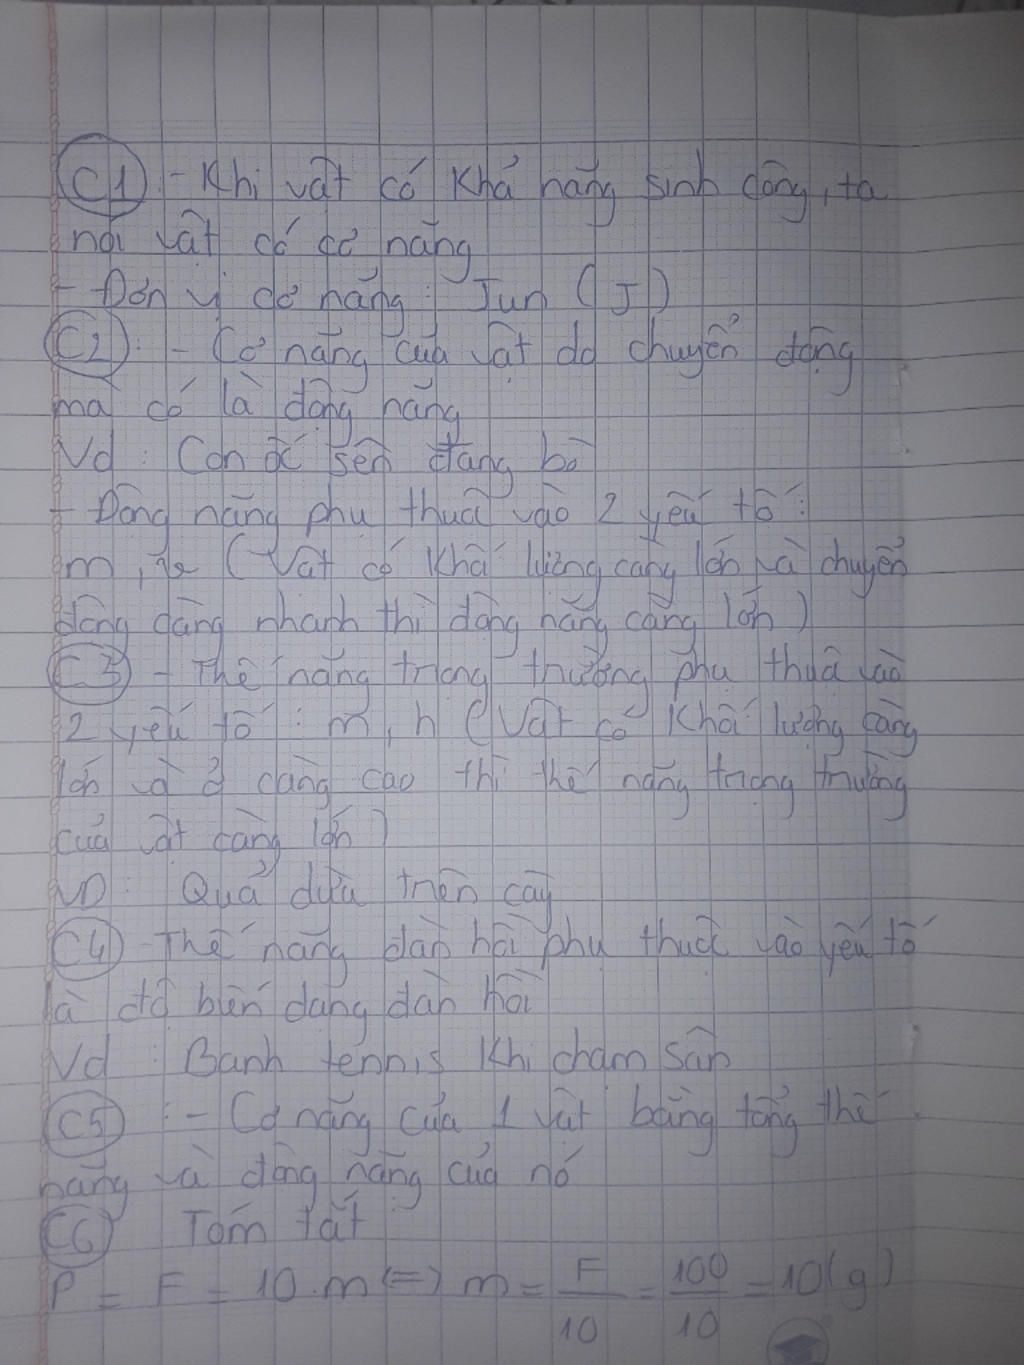 C1 : - Khi vật có khả năng sinh công, ta
nói vật có cơ năng
- Đơn vị cơ năng : Jun ( J )
C2 : - Cơ năng của vật do chuyển động
mà có là động năng
Vd : Con ốc sên đang bò
- Động năng phụ thuộc vào 2 yếu tố :
m , v ( Vật có khối lượng càng lớn và chuyển
động càng nhanh thì động năng càng lớn )
C3 - Thế năng trọng trường phụ thuộc vào
2 yếu tố : m , h ( Vật có khối lượng càng
lớn và ở càng cao thì thế năng trọng trường
của vật càng lớn )
VD : Quả dừa trên cây
C4 - Thế năng đàn hồi phụ thuộc vào yếu tố
là độ biến dạng đàn hồi
Vd : Banh tennis khi chạm sân
C5 : - Cơ năng của 1 vật bằng tổng thế
năng và động năng của nó
C6 Tóm tắt
P = F = 10 . m <=> m = F/10 = 100/10 = 10 ( g )